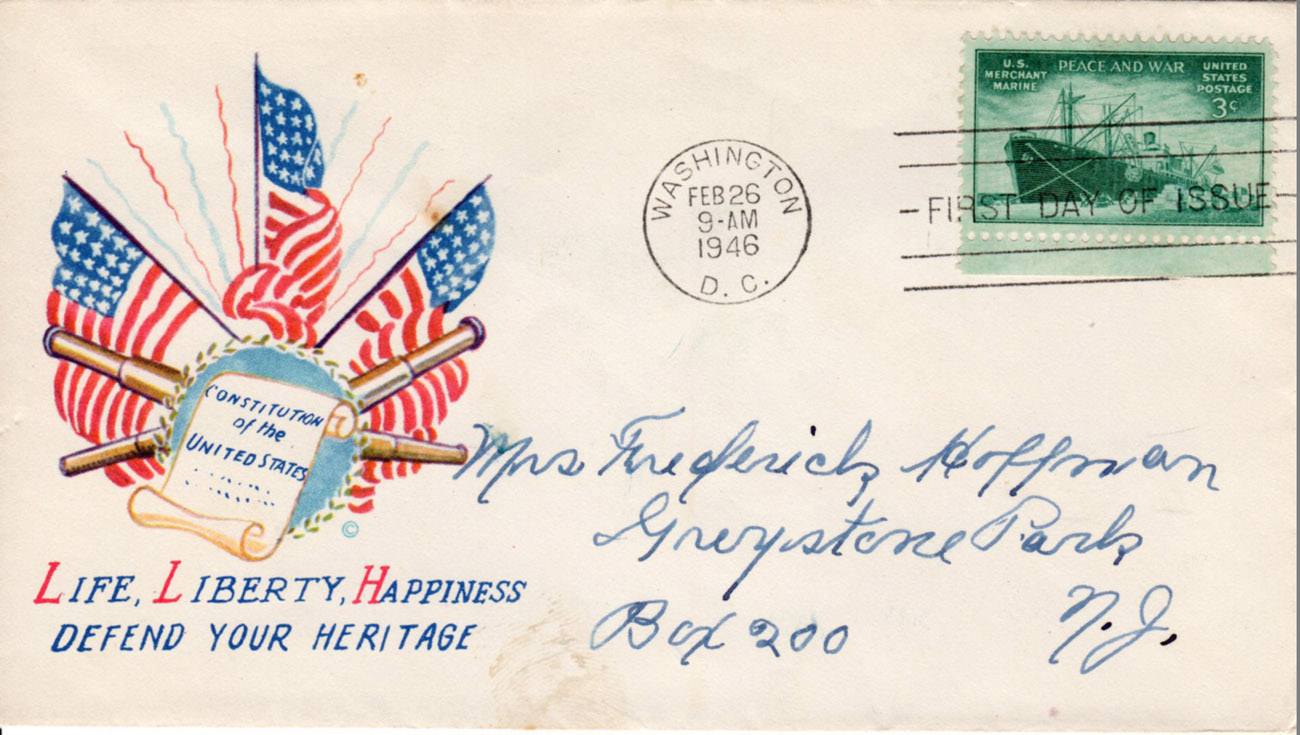 U.S.
MERCHANT
MARINE
PEACE AND WAR
UNITED
STATES
POSTAGE
3¢
WASHINGTON
FEB 26
9-AM
1946
D. C.
FIRST DAY OF ISSUE
CONSTITUTION
of the
UNITED STATES
©
LIFE, LIBERTY, HAPPINESS
DEFEND YOUR HERITAGE
Mrs Frederick Hoffman
Greystone Park
Box 200 N.J.